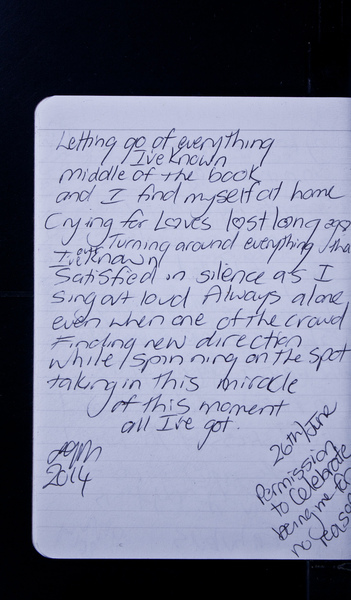 Letting go of everything
I've known
middle of the book
and I find myself at home
Crying for Loves lost long ago
Turning around everything
I've ever known
Satisfied in silence as I
sing out loud Always alone
even when one of the crowd
Finding new direction
while spinning on the spot
taking in this miracle
of this moment
all I've got.
2014
26th/June
Permission
to celebrate
being me for
no reason